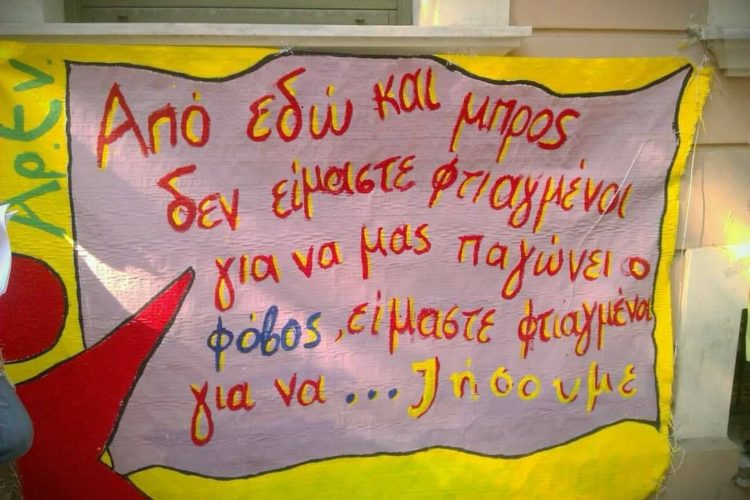 Αρ.Εν.
Από εδώ και μπρος
δεν είμαστε φτιαγμένοι
για να μας παγώνει ο
φόβος, είμαστε φτιαγμένοι
για να... Ζήσουμε